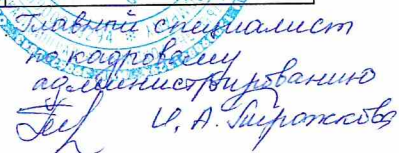 Главный специалист
по кадровому
администрированию
И. А. Пирожкова